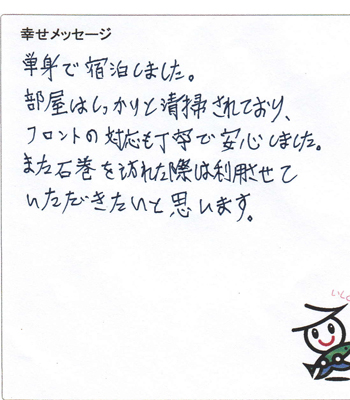 幸せメッセージ
単身で宿泊しました。
部屋はしっかりと清掃されており、
フロントの対応も丁寧で安心しました。
また石巻を訪れた際は利用させて
いただきたいと思います。